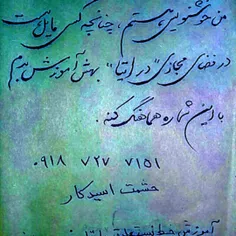 من خوشنویس هستم، چنانچه کسی مایل هست
در فضای مجازی "در ایتا" بهش آموزش بدم
با این شماره هماهنگ کنه.
۰۹۱۸ ۷۲۷ ۷۱۵۱
حشمت اسیدکار
آموزش خط نستعلیق